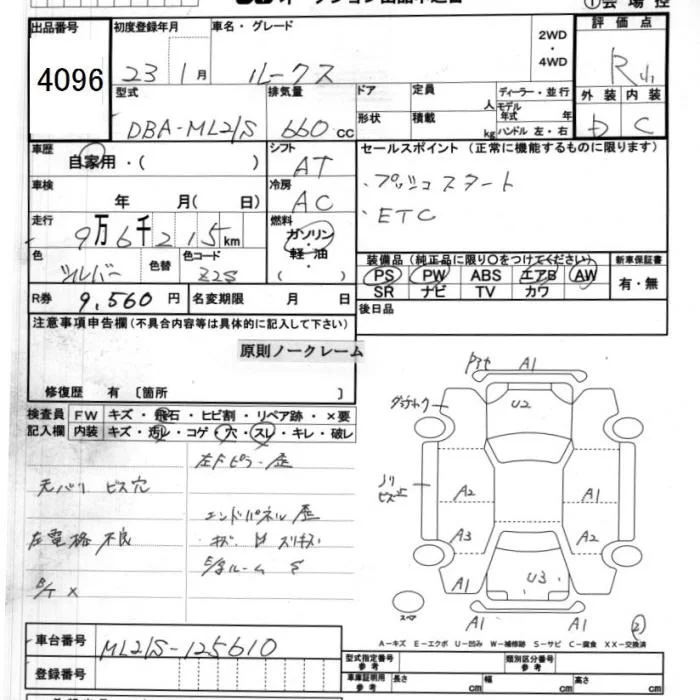 オークション出品申込書
①会場控
出品番号
4096
初度登録年月
23 1月
車名・グレード
ルークス
2WD
・
4WD
評価点
R小
外装 内装
D C
型式
DBA-ML21S
排気量
660 cc
ドア
定員 人
形状
積載 kg
ディーラー・並行
モデル年式 年
ハンドル 左・右
車歴
自家用・( )
シフト
AT
セールスポイント (正常に機能するものに限ります)
・プッシュスタート
・ETC
車検
年 月( 日)
冷房
AC
走行
9万6千215km
燃料
ガソリン・
軽・油
・
色
シルバー
色替
色コード
Z2S
装備品 (純正品に限り○をつけてください)
PS PW ABS エアB AW
SR ナビ TV カワ
新車保証書
有・無
R券
9,560円
名変期限 月 日
後日品
注意事項申告欄(不具合内容等は具体的に記入して下さい)
原則ノークレーム
修復歴 有 〔箇所 〕
検査員記入欄
FW キズ・飛石・ヒビ割・リペア跡・×要
内装 キズ・汚レ・コゲ・穴・スレ・キレ・破レ
左Fピラー歪
天バリ ビス穴
エンドパネル歪
左電格不良
キズ
ルーム
×
A1
U2
A2
A1
A3
A2
A1
U3
A1
A1
A1
スペア
②
A-キズ E-エクボ U-凹み W-補修跡 S-サビ C-腐食 XX-交換済
車台番号
ML21S-125610
登録番号
型式指定番号 参考
類別区分番号 参考
車庫証明用 参考
長さ cm 幅 cm 高さ cm